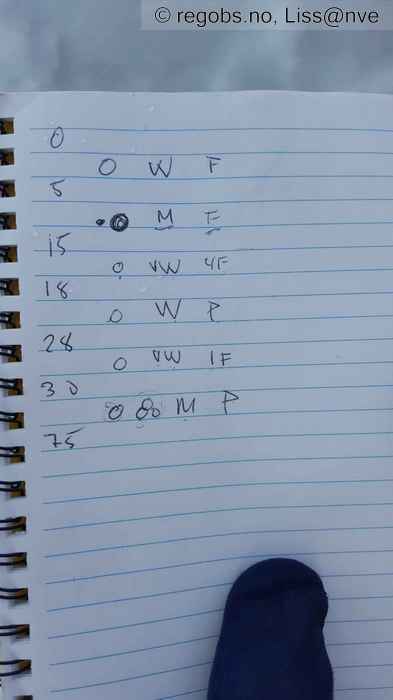 © regobs.no, Liss@nve
0
O W F
5
M F
15
O VW 4F
18
O W P
28
O VW 1F
30
O 8o M P
75